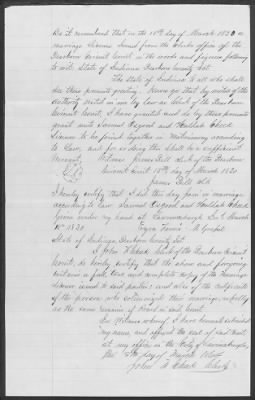 Be it remembered that on the 15th day of March 1820 a
marriage License issued from the Clerks office of the
Dearborn Circuit Court in the words and figures following
to wit, State of Indiana Dearborn County Sct.
The State of Indiana to all who shall
see these presents greeting. Know ye that by virtue of the
authority vested in me by law as Clerk of the Dearborn
Circuit Court, I have granted and do by these presents
grant unto Samuel Osgood and
License to be joined together in Matrimony according
to Law, and for so doing this shall be a sufficient
Warrant. Witness James Dill Clerk of the Dearborn
Circuit Court 15th day of March 1820
James Dill Clk
I hereby certify that I did this day join in marriage
according to law Samuel Osgood and
Given under my hand at Lawrenceburgh
15th 1820
State of Indiana, Dearborn County Sct.
I John A Clerk of the Dearborn Circuit
Court, do hereby certify that the above and foregoing
is a full true and complete copy of the Marriage
License issued to said parties and also of the certificate
of the person who solemnized their marriage,
as the same remains of Record in said Court.
In Witness whereof I have hereunto subscribed
my name, and affixed the seal of said Court
at my office in the City of Lawrenceburgh
this day of
John A Clerk